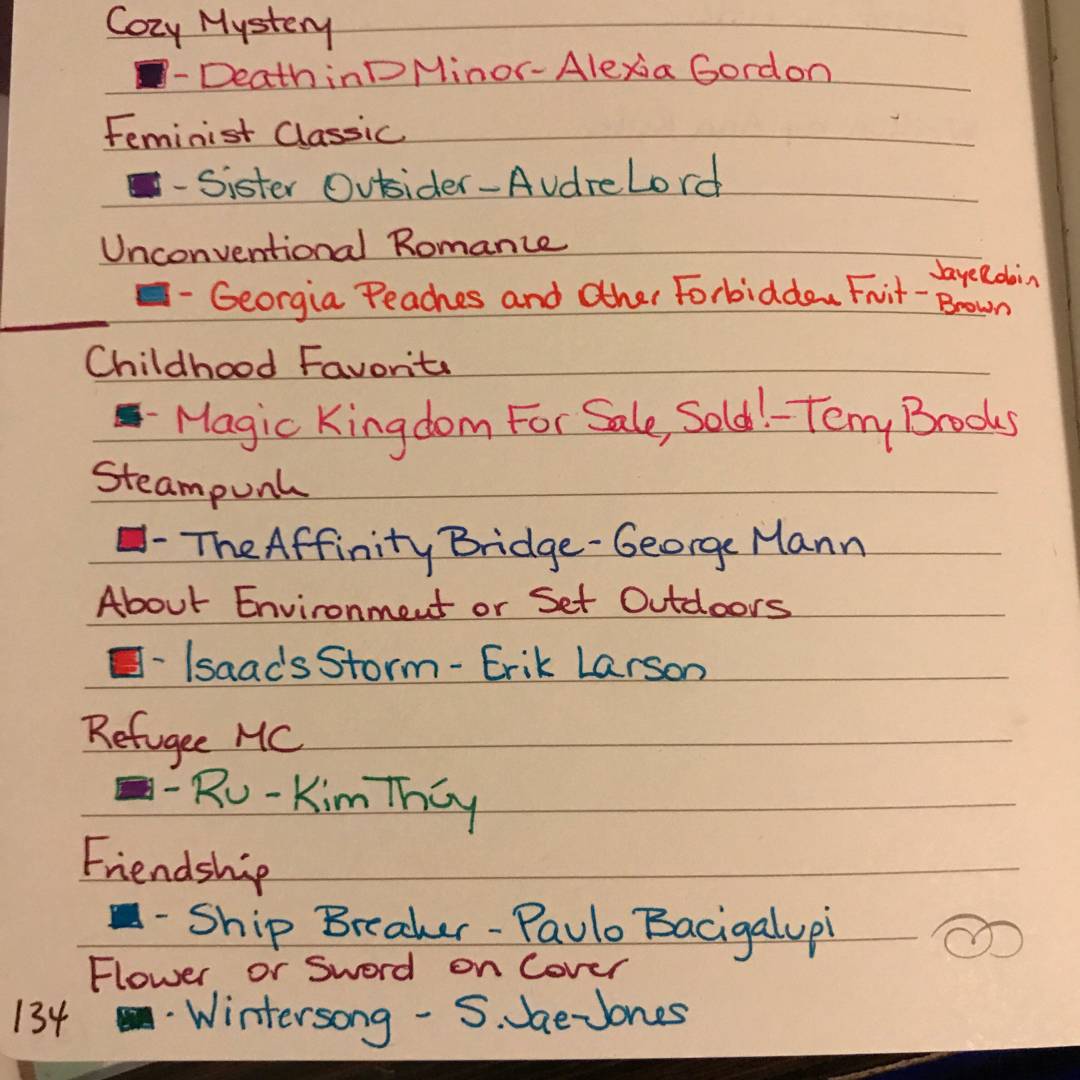 Cozy Mystery
- Death in D Minor - Alexia Gordon
Feminist Classic
- Sister Outsider - Audre Lord
Unconventional Romance
- Georgia Peaches and Other Forbidden Fruit - Jaye Robin
Brown
Childhood Favorite
- Magic Kingdom For Sale, Sold! - Terry Brooks
Steampunk
- The Affinity Bridge - George Mann
About Environment or Set Outdoors
- Isaac's Storm - Erik Larson
Refugee MC
- Ru - Kim Thúy
Friendship
- Ship Breaker - Paulo Bacigalupi
Flower or Sword on Cover
134 - Wintersong - S. Jae-Jones